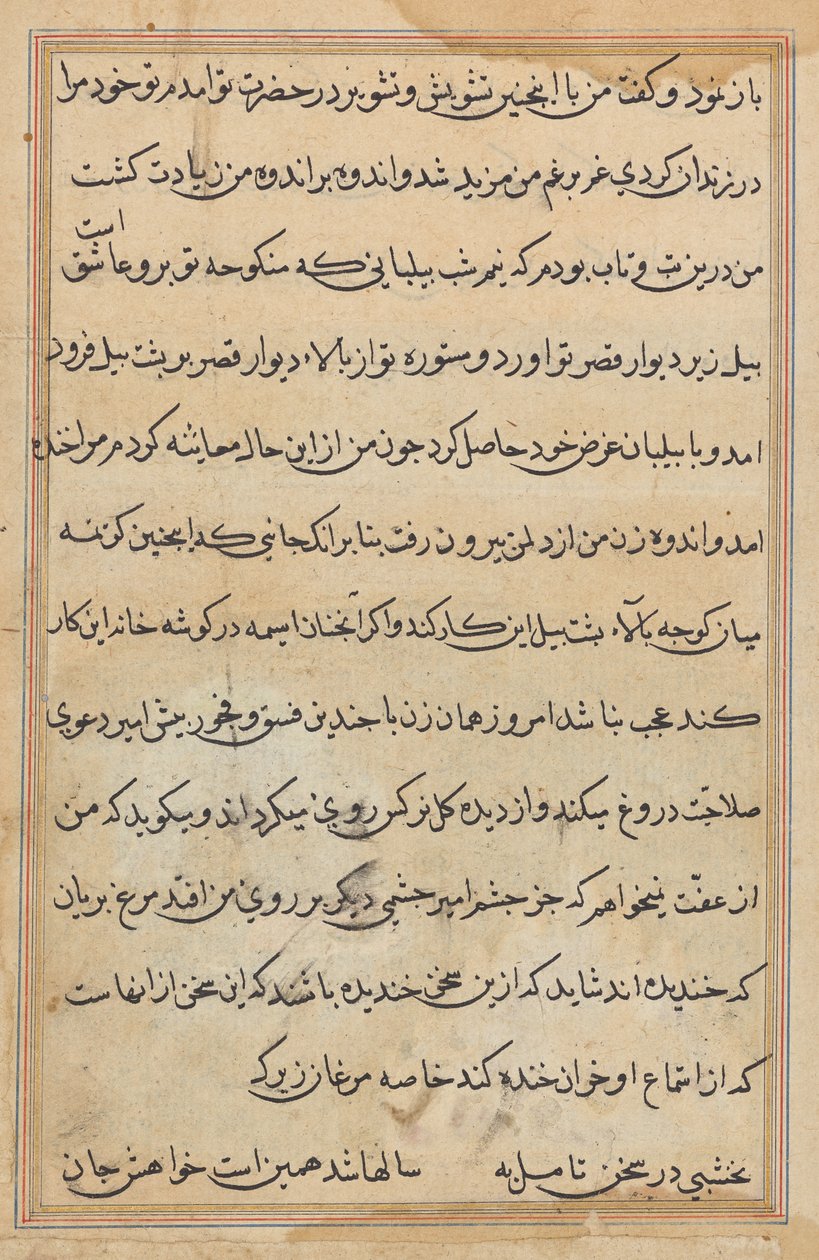 باز نمود و کفت من با اینجنین تشویش و تشویر در حضرت تو امدم تو خود مرا
در زندان کردی غم بر غم من مزید شد و اندوه بر اندوه من زیادت کشت
است
من درین تب و تاب بودم که نیم شب بیلبانی که منکوحه تو برو عاشق
بیل زیر دیوار قصر تو اورد و مستوره تو از بالاء دیوار قصر بر بشت بیل فرود
امد و با بیلبان غرض خود حاصل کرد جون من از این حال معاینه کردم مرا خنده
امد و اندوه زن من از دل من بیرون رفت بنا برانک جانیی که اینجنین
میان کوجه بالاء بشت بیل این کار کند و اکر آنجنان ایسمه در کوشه خانه این کار
کند عجب نباشد امروز همان زن با جندین فسق و فجور بیش امیر دعوی
صلاحیت دروغ میکند و از دیده کل نرکس روی میکرداند و میکوید که من
از عفّت نمیخواهم که جز جشم امیر جشمی دیکر بر روی من افتد مرغ بریان
که خندیده اند شاید که ازین سخن خندیده باشند که این سخن از انهاست
که از استماع او خران خنده کند خاصه مرغان زیرک
نخشبی در سخن تامل به سالها شد همین است خواهش جان